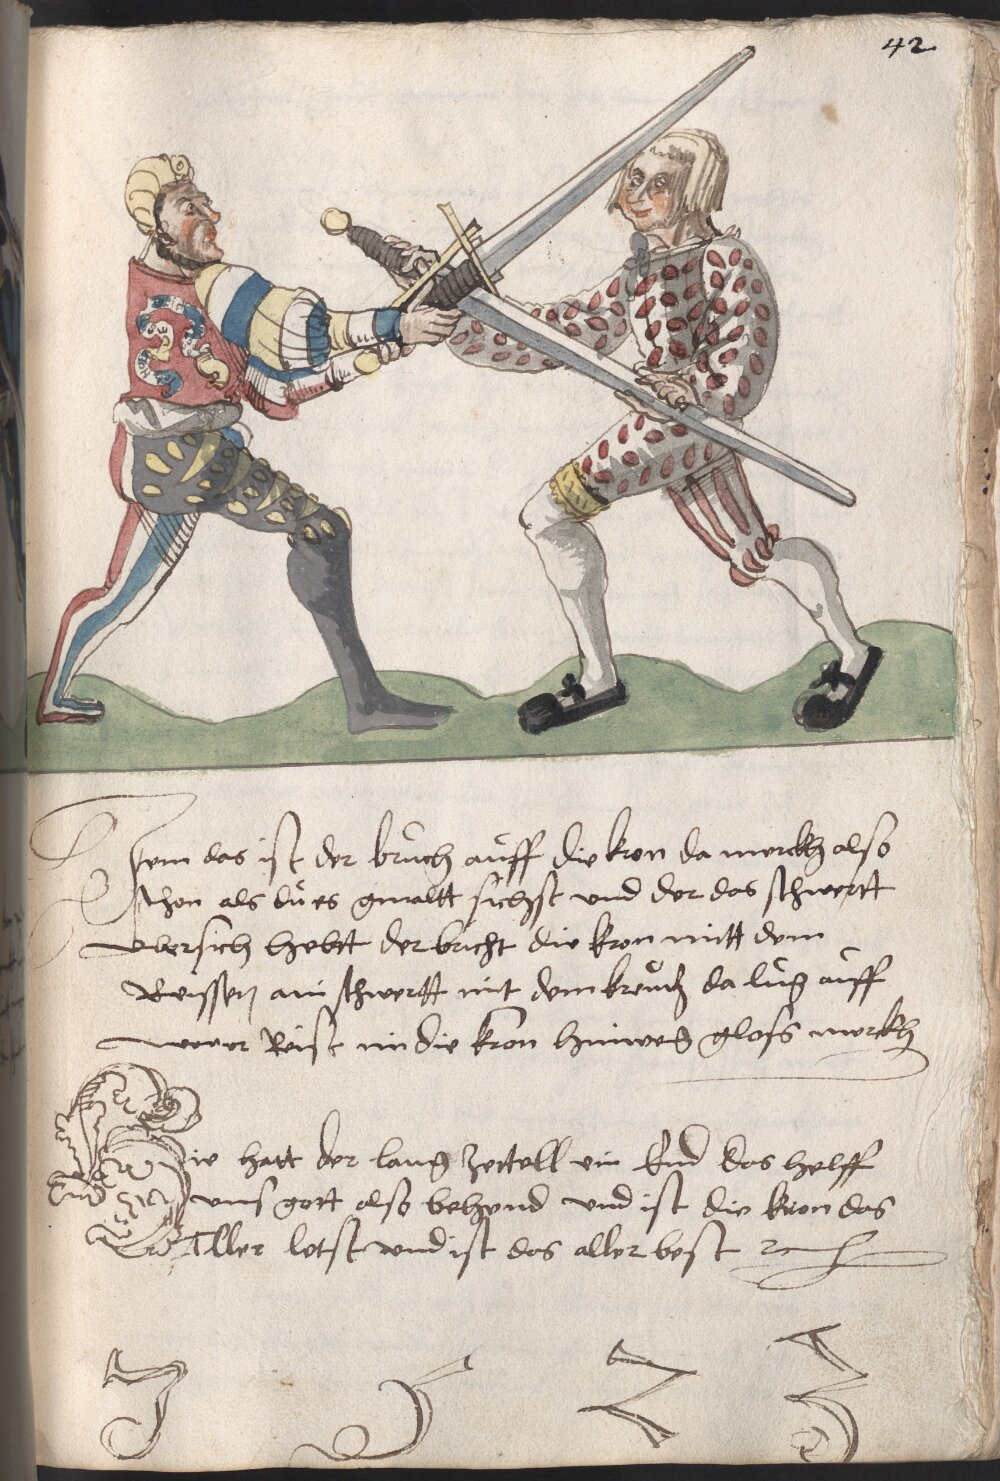 42
Item das ist der bruch auff die kron da merckh also
schon als du es gwaltt sichst und der das schwertt
ubersich hebtt der bricht die kron mitt dem
Reissen am schwertt mit dem kreutz da lug auff
wer Reist im die kron hinweg gloss merckh
Hie hatt der lang Zettell ein End das helff
unss gott also behend und ist die kron das
Aller letst und ist das aller best
1 5 2 3